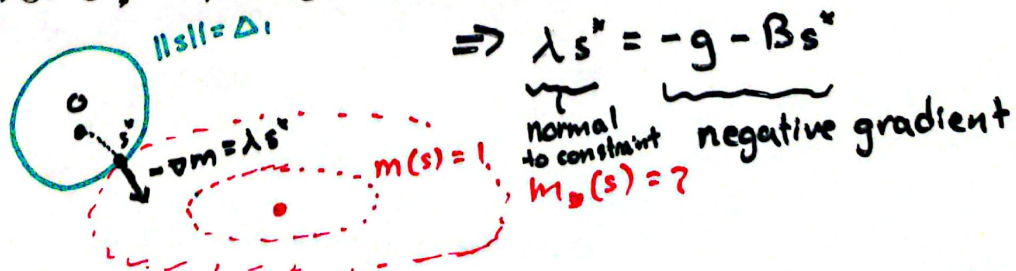 ||s|| = Δ₁
⇒ λs* = -g - Bs*
normal to constraint
negative gradient
0
s*
-∇m = λs*
m(s) = 1